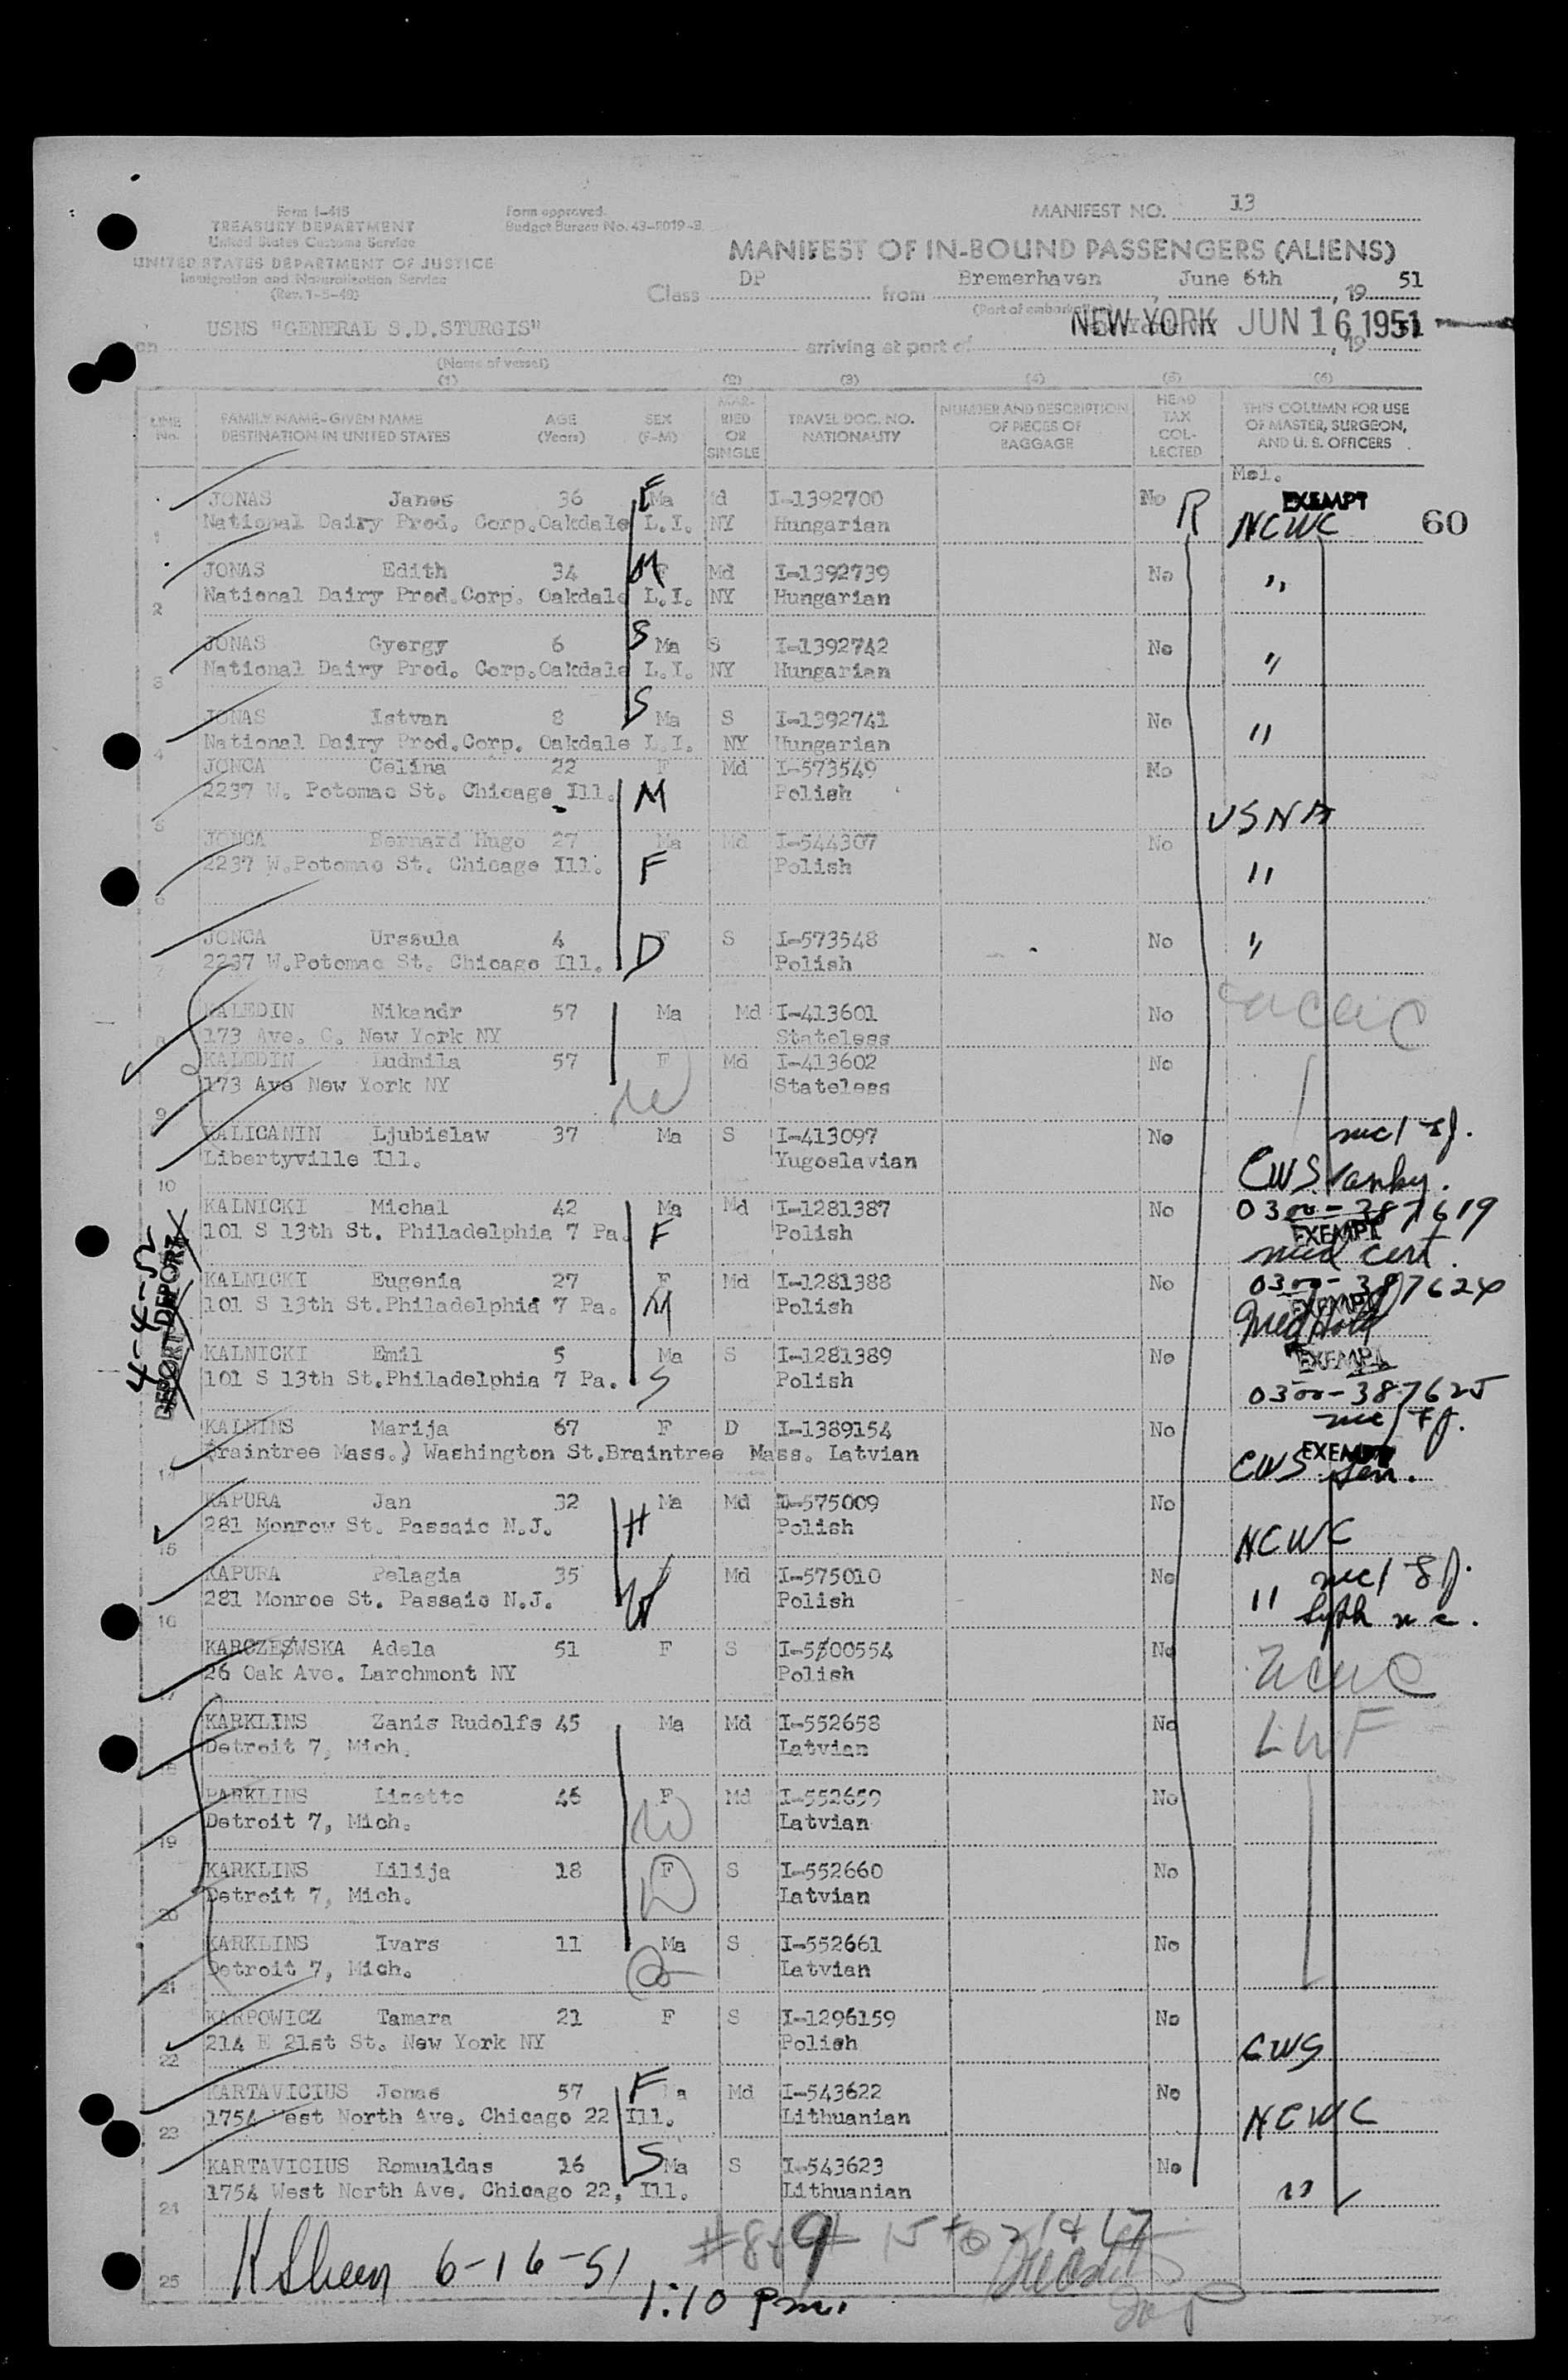 Form I-415
TREASURY DEPARTMENT
United States Customs Service
UNITED STATES DEPARTMENT OF JUSTICE
Immigration and Naturalization Service
(Rev. 1-5-49)
Form approved.
Budget Bureau No. 43-R019-2.
MANIFEST NO. 13
MANIFEST OF IN-BOUND PASSENGERS (ALIENS)
Class DP from Bremerhaven, June 6th, 19 51
(Port of embarkation)
USNS "GENERAL S.D.STURGIS"
on arriving at port of NEW YORK JUN 16 1951, 19
(Name of vessel)
(1) (2) (3) (4) (5) (6)
LINE No. FAMILY NAME-GIVEN NAME DESTINATION IN UNITED STATES AGE (Years) SEX (F-M) MARRIED OR SINGLE TRAVEL DOC. NO. NATIONALITY NUMBER AND DESCRIPTION OF PIECES OF BAGGAGE HEAD TAX COLLECTED THIS COLUMN FOR USE OF MASTER, SURGEON, AND U. S. OFFICERS
JONAS Janos 36 F Ma d I-1392700 No R EXEMPT
1 National Dairy Prod. Corp.Oakdale L.I. NY Hungarian NCWC 60
JONAS Edith 34 M F Md I-1392739 No "
2 National Dairy Prod.Corp. Oakdale L.I. NY Hungarian
JONAS Gyorgy 6 S Ma S I-1392742 No
3 National Dairy Prod. Corp.Oakdale L.I. NY Hungarian "
JONAS Istvan 8 S Ma S I-1392741 No
4 National Dairy Prod.Corp. Oakdale L.I. NY Hungarian "
JONCA Celina 22 F Md I-573549 No
5 2237 W. Potomac St. Chicago Ill. M Polish USNA
JONCA Bernard Hugo 27 Ma Md I-544307 No
6 2237 W.Potomac St. Chicago Ill. F Polish "
JONCA Urssula 4 F S I-573548 No "
7 2237 W.Potomac St. Chicago Ill. D Polish
KALEDIN Nikandr 57 Ma Md I-413601 No
8 173 Ave. C. New York NY Stateless
KALEDIN Ludmila 57 F Md I-413602 No
9 173 Ave New York NY W Stateless
KALICANIN Ljubislaw 37 Ma S I-413097 No
10 Libertyville Ill. Yugoslavian CWS
KALNICKI Michal 42 Ma Md I-1281387 No 0300-387619
101 S 13th St. Philadelphia 7 Pa. F Polish EXEMPT
med cert.
KALNICKI Eugenia 27 F Md I-1281388 No 0300-387624
101 S 13th St.Philadelphia 7 Pa. M Polish EXEMPT
Med Hold
KALNICKI Emil 5 Ma S I-1281389 No EXEMPT
101 S 13th St.Philadelphia 7 Pa. S Polish 0300-387625
4-4-52
DEPORT DEPORT
KALNINS Marija 67 F D I-1389154 No
14 (raintree Mass.) Washington St.Braintree Mass. Latvian EXEMPT
CWS Sen.
KAPURA Jan 32 Ma Md I-575009 No
15 281 Monrow St. Passaic N.J. H Polish NCWC
KAPURA Pelagia 35 F Md I-575010 No
16 281 Monroe St. Passaic N.J. W Polish "
KARCZEWSKA Adela 51 F S I-5500554 No
17 26 Oak Ave. Larchmont NY Polish NCWC
KARKLINS Zanis Rudolfs 45 Ma Md I-552658 No
18 Detroit 7, Mich. Latvian LWF
PARKLINS Lizette 46 F Md I-552659 No
19 Detroit 7, Mich. W Latvian
KARKLINS Lilija 18 F S I-552660 No
20 Detroit 7, Mich. D Latvian
KARKLINS Ivars 11 Ma S I-552661 No
21 Detroit 7, Mich. Latvian
KARPOWICZ Tamara 21 F S I-1296159 No
22 214 E 21st St. New York NY Polish CWS
KARTAVICIUS Jonas 57 F Ma Md I-543622 No
23 1754 West North Ave. Chicago 22 Ill. Lithuanian NCWC
KARTAVICIUS Romualdas 16 S Ma S I-543623 No
24 1754 West North Ave. Chicago 22, Ill. Lithuanian "
25 K Sheen 6-16-51
1:10 Pm.